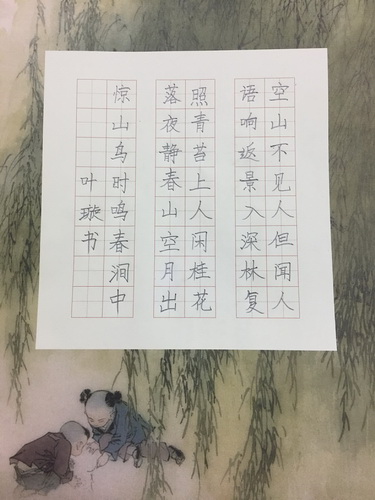 空山不见人但闻人
语响返景入深林复
照青苔上人闲桂花
落夜静春山空月出
惊山鸟时鸣春涧中
叶璇书